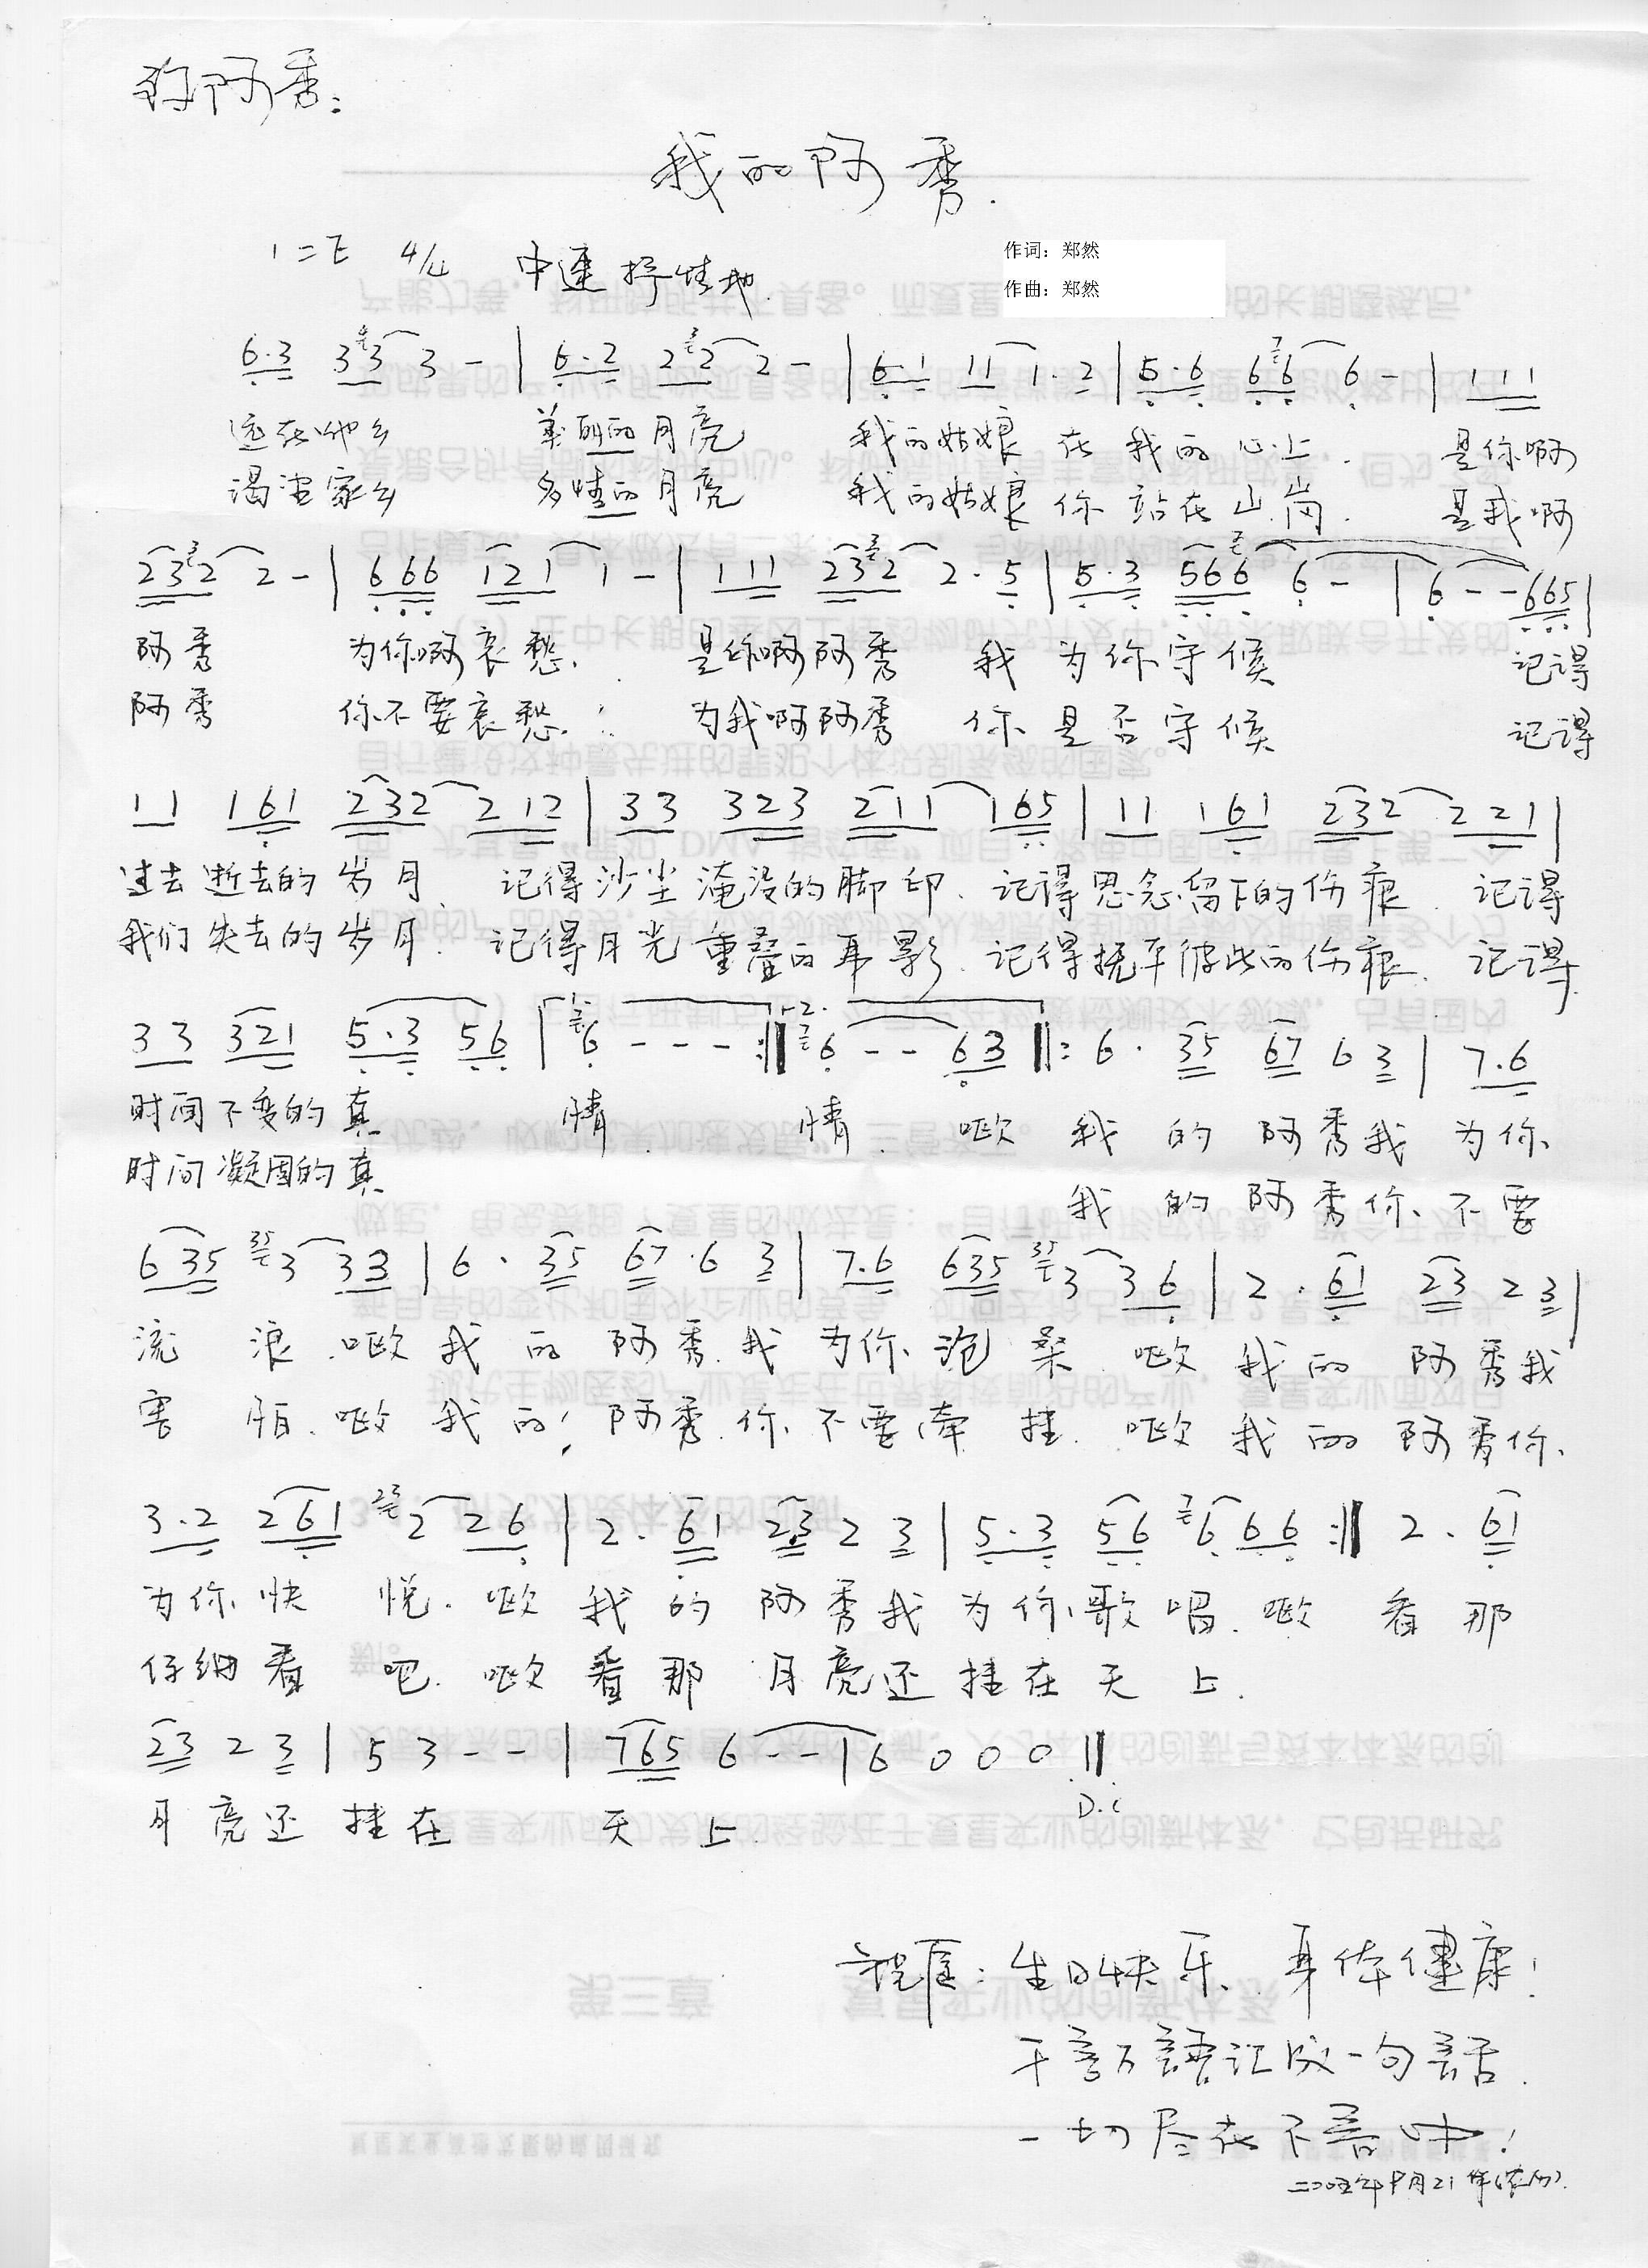 阿秀:
我的阿秀.
1=E 4/4 中速 抒情地
作词：郑然
作曲：郑然
6·3 3 3 3 - | 6·2 2 2 2 - | 6·1 11 1·2 | 5·6 66 6 - | 111
远在他乡 美丽的月亮 我的姑娘 在我的心上. 是你啊
渴望家乡 多情的月亮 我的姑娘 你站在山岗. 是我啊
232 2 - | 666 121 1 - | 111 232 2·5 | 5·3 566 6 - | 6 - - 665 |
阿秀 为你啊哀愁. 是你啊阿秀 我为你守候 记得
阿秀 你不要哀愁. 为我啊阿秀 你是否守候 记得
11 161 232 212 | 33 323 211 165 | 11 161 232 221 |
过去逝去的岁月. 记得沙尘淹没的脚印. 记得思念留下的伤痕. 记得
我们失去的岁月. 记得月光重叠的耳影. 记得抚平彼此的伤痕. 记得
33 321 5·3 56 | 6 - - - :‖ 6 - - 63 ‖: 6·35 67 6 3 | 7.6
时间不变的真 情. 情. 呕 我的阿秀我为你
时间凝固的真 我的阿秀你不要
635 3 33 | 6·35 67·6 3 | 7.6 635 3 36 | 2·61 23 2 3 |
流浪.呕我的阿秀.我为你沧桑.呕我的阿秀我
害怕.呕我的阿秀.你不要牵挂.呕我的阿秀你
3·2 261 2 26 | 2·61 23 2 3 | 5·3 56 6 66 :‖ 2·61
为你快悦.呕我的阿秀我为你歌唱.呕看那
仔细看吧.呕看那月亮还挂在天上.
23 2 3 | 5 3 - - | 765 6 - - | 6 0 0 0 ‖
D.C
月亮还挂在天上.
生日快乐、身体健康!
千言万語汇成一句話.
一切尽在不言中!
二00五年9月21